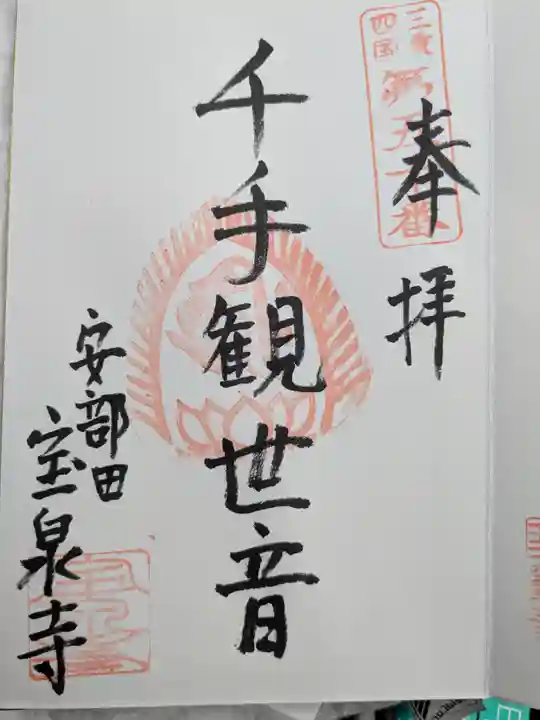 三重
四国
第五十番
奉拝
千手観世音
安部田
宝泉寺